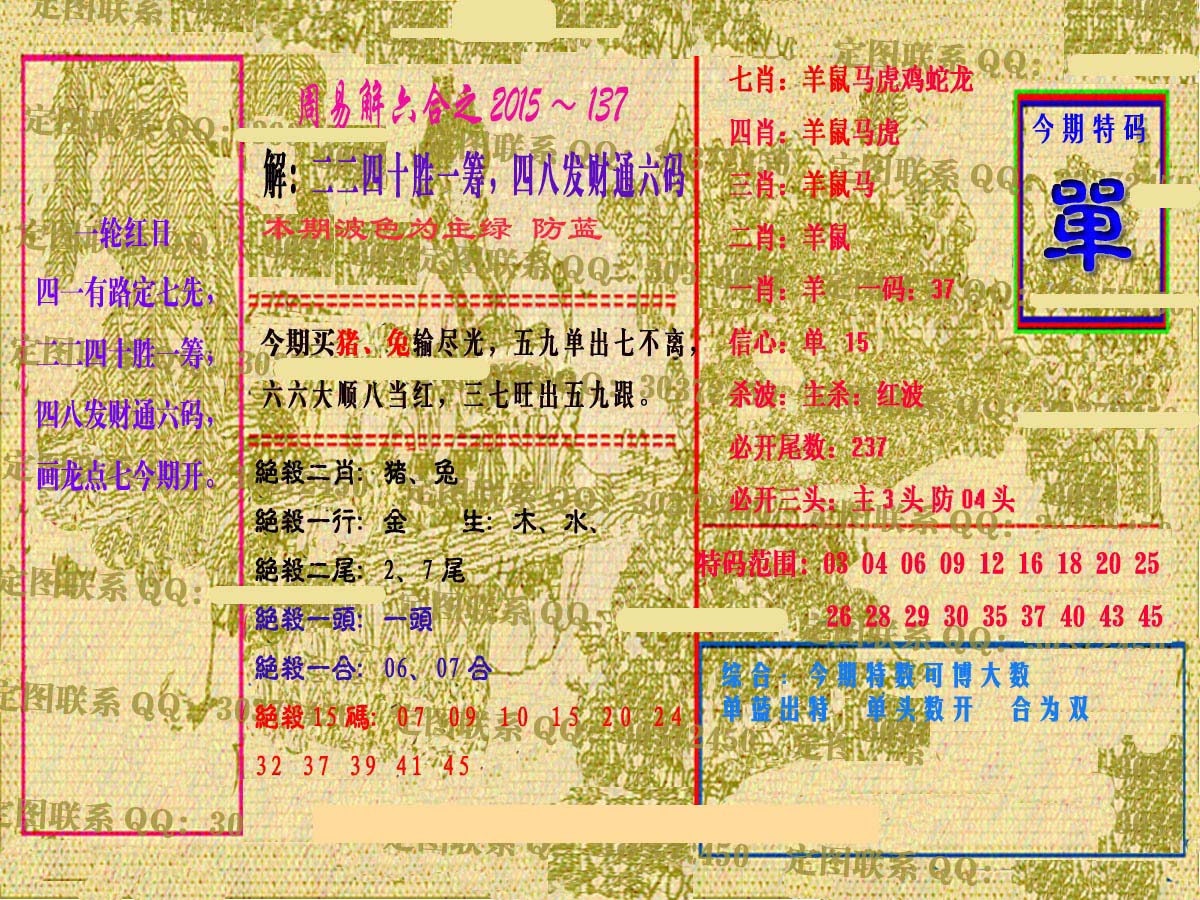 一轮红日
四一有路定七先，
二二四十胜一筹，
四八发财通六码，
画龙点七今期开。
周易解六合之 2015～137
解：二二四十胜一筹，四八发财通六码
本期波色为主绿 防蓝
今期买猪、兔输尽光，五九单出七不离，
六六大顺八当红，三七旺出五九跟。
絕殺二肖：猪、兔
絕殺一行：金 生：木、水、
絕殺二尾：2、7尾
絕殺一頭：一頭
絕殺一合：06、07合
絕殺15碼：07 09 10 15 20 24
32 37 39 41 45
七肖：羊鼠马虎鸡蛇龙
四肖：羊鼠马虎
三肖：羊鼠马
二肖：羊鼠
一肖：羊 一码：37
信心：单 15
杀波：主杀：红波
必开尾数：237
必开三头：主3头防04头
今期特码
單
特码范围：03 04 06 09 12 16 18 20 25
26 28 29 30 35 37 40 43 45
综合：今期特数可博大数
单蓝出特 单头数开 合为双
定图联系 QQ：